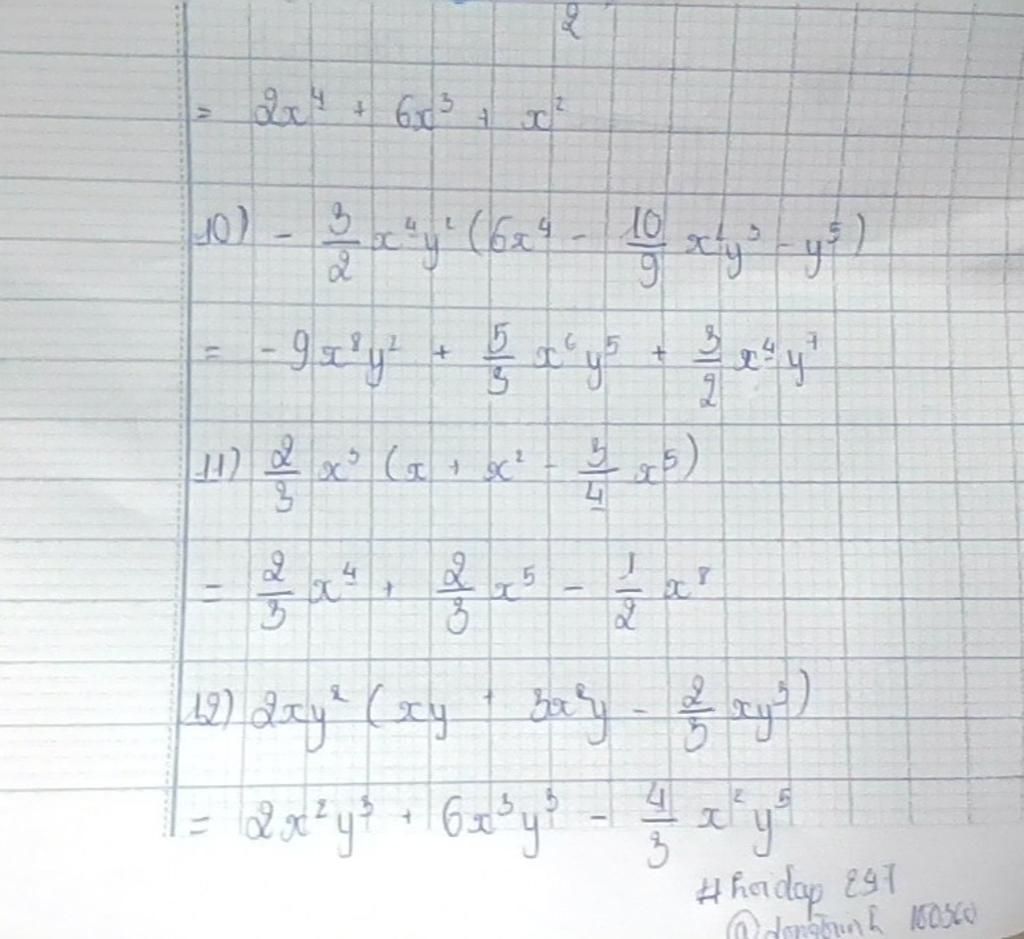 2
= 2x⁴ + 6x³ + x²
10) - 3/2 x⁴y² (6x⁴ - 10/9 x²y³ - y⁵)
= -9x⁸y² + 5/3 x⁶y⁵ + 3/2 x⁴y⁷
11) 2/3 x³ (x + x² - 3/4 x⁵)
= 2/3 x⁴ + 2/3 x⁵ - 1/2 x⁸
12) 2xy² (xy + 3x²y - 2/3 xy³)
= 2x²y³ + 6x³y³ - 4/3 x²y⁵
#hoidap 247